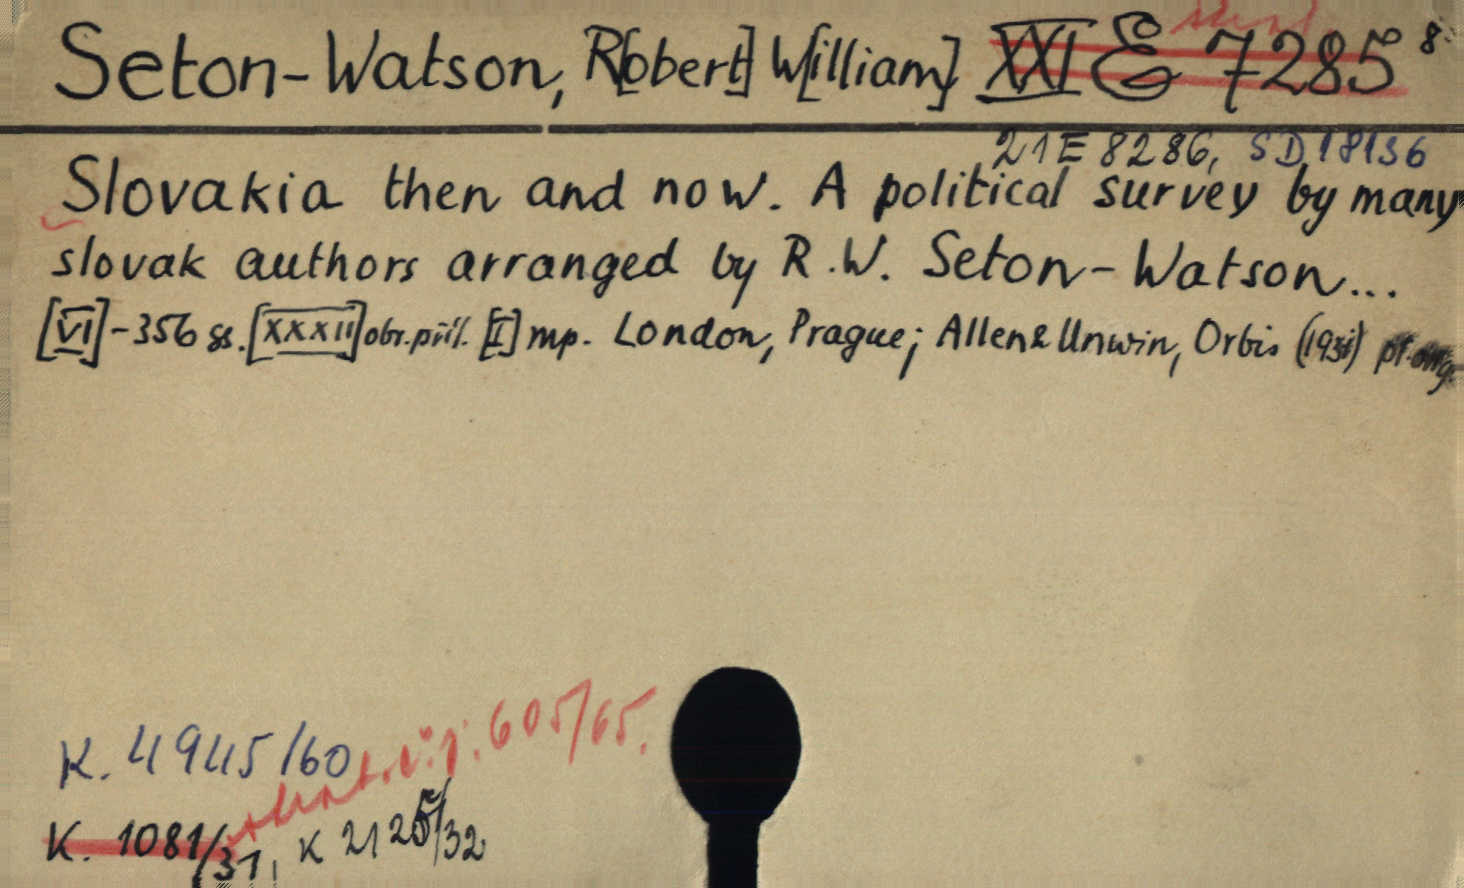 Seton-Watson, R[obert] W[illiam] XXI E 7285 8°
21E 8286, SD 18136
Slovakia then and now. A political survey by many
slovak authors arranged by R.W. Seton-Watson...
[VI]-356 ss. [XXXII] obr. příl. [I] mp. London, Prague; Allen & Unwin, Orbis (1931)
K. 4945/60
605/65.
K. 1081/31, K 2125/32